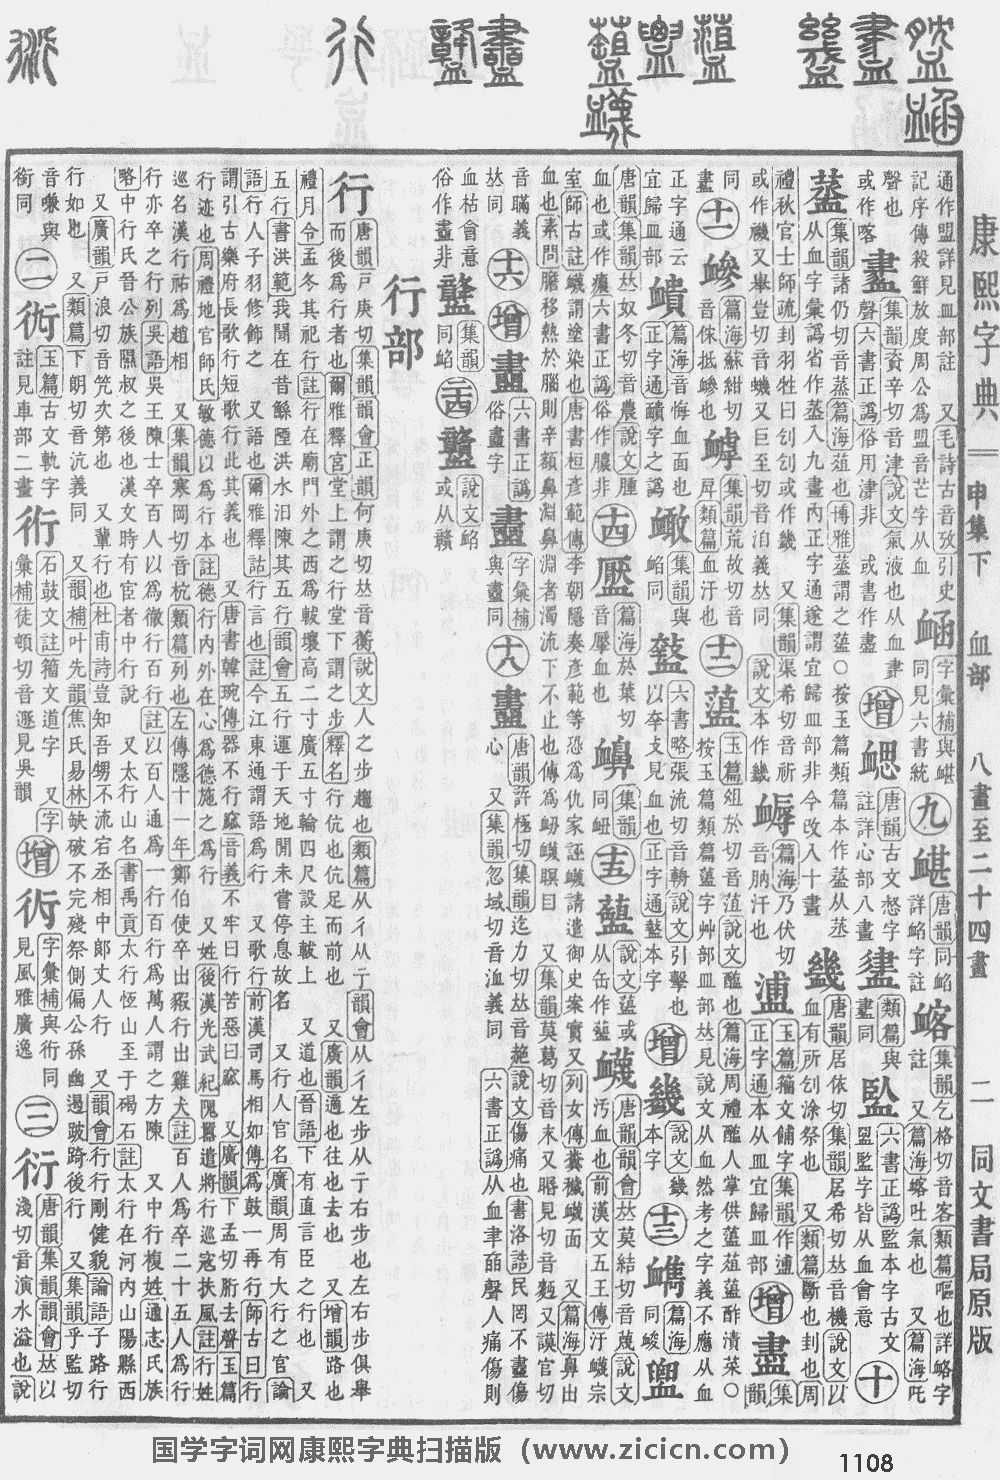 康熙字典 申集下 血部 八畫至二十四畫 二 同文書局原版
通作盟詳見皿部註 又毛詩古音攷引史記序傳殺鮮放度周公爲盟音芒字从血
字彙補與 同見六書統
九
唐韻同衉詳衉字註
衉 集韻乞格切音客類篇嘔也詳略字註 又篇海衉吐氣也 又篇海吒
聲也或作喀
衋 集韻資辛切音津說文氣液也从血聿聲六書正譌俗用津非 或書作盡
增
唐韻古文惄字註詳心部八畫
類篇與衋同
六書正譌監本字古文 監字皆从血會意
十
蒕 集韻諸仍切音蒸篇海葅也博雅蒕謂之葅○按玉篇類篇本作蒕从蒸从血字彙譌省作蒸入九畫內正字通遂謂宜歸皿部非今改入十畫
唐韻居依切集韻居希切音機說文以血有所刉涂祭也 又類篇斷也刲也周禮秋官士師疏刲羽牲曰刉刉或作幾 又集韻渠希切音祈或作禨又舉豈切音蟣又巨至切音洎義同
說文本作𧗎
篇海乃伏切音肭汗也
玉篇籀文餔字集韻作逋正字通本从皿宜歸皿部
增
集韻同
十一
篇海蘇紺切音俕抵摻也
集韻荒故切音戽類篇血汗也
十二
玉篇俎於切音葅說文醢也篇海周禮醢人掌供葅葅蘫酢漬菜○按玉篇類篇字艸部皿部見說文从血然考之字義不應从血正字通云宜歸皿部
篇海音悔血面也正字通䪼字之譌
集韻與衉同
六書略張流切音輈說文引擊也以㚔攴見血也正字通盩本字
增
說文𧗎本字
十三
篇海同峻
唐韻集韻奴冬切音農說文腫血也或作癑六書正譌俗作膿非
十四
篇海於葉切音魘血也
集韻同衄
十五
說文蘫或从缶作
衊 唐韻韻會莫結切音蔑說文汚血也前漢文五王傳汙衊宗室師古註衊謂塗染也唐書桓彥範傳李朝隱奏彥範等恐爲仇家誣衊請遣御史案實又列女傳糞穢衊面 又篇海鼻出血也素問膽移熱於腦則辛頞鼻淵鼻淵者濁流下不止也傳爲衄衊瞑目 又集韻莫葛切音末又眠見切音麪又謨官切音瞞義同
十六 增
六書正譌俗盡字
字彙補與盡同
十八
衋 唐韻許極切集韻迄力切音赩說文傷痛也書洛誥民罔不盡傷心 又集韻忽域切音洫義同 六書正譌从血聿皕聲人痛傷則血枯會意俗作盡非
集韻同衉
二十四
說文衉或从贛
行部
行 唐韻戸庚切集韻韻會正韻何庚切音衡說文人之步趨也類篇从彳从亍韻會从彳左步从亍右步也左右步俱舉而後爲行者也爾雅釋宮堂上謂之行堂下謂之步釋名行伉也伉足而前也 又廣韻適也往也去也 又增韻路也禮月令孟冬其祀行註行在廟門外之西爲軷壤高二寸廣五寸輪四尺設主軷上 又道也晉語下有直言臣之行也 又五行書洪範我聞在昔鯀陻洪水汨陳其五行韻會五行運于天地閒未嘗停息故名 又行人官名廣韻周有大行之官論語行人子羽修飾之 又語也爾雅釋詁行言也註今江東通謂語爲行 又歌行前漢司馬相如傳爲鼓一再行師古曰行謂引古樂府長歌行短歌行此其義也 又唐書韓琬傳器不行窳音義不牢曰行苦惡曰窳 又廣韻下孟切胻去聲玉篇行迹也周禮地官師氏敏德以爲行本註德行內外在心爲德施之爲行 又姓後漢光武紀隗囂遣將行巡寇扶風註行姓巡名漢行祐爲趙相 又集韻寒岡切音杭類篇列也左傳隱十一年鄭伯使卒出豭行出雞犬註百人爲卒二十五人爲行行亦卒之行列吳語吳王陳士卒百人以爲徹行百行註以百人通爲一行百行爲萬人謂之方陳 又中行複姓通志氏族略中行氏晉公族隰叔之後也漢文時有宦者中行說 又太行山名書禹貢太行恆山至于碣石註太行在河內山陽縣西 又廣韻戸浪切音笐次第也 又輩行也杜甫詩豈知吾甥不流宕丞相中郞丈人行 又韻會行行剛健貌論語子路行行如也 又類篇下朗切音沆義同 又韻補叶先韻焦氏易林蚗破不完殘祭側偏公孫幽遏跛踦後行 又集韻乎監切音嗛與銜同
二
玉篇古文軌字註見車部二畫
石鼓文註籀文道字 又字彙補徒頓切音遯見吳韻
增
字彙補與術同見風雅廣逸
三
衍 唐韻集韻韻會以淺切音演水溢也說
国学字词网康熙字典扫描版（www.zicicn.com）
1108